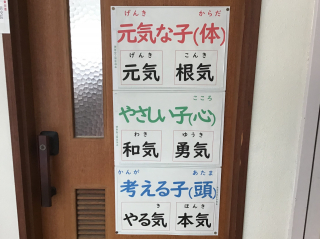 げんき からだ
元気な子(体)
げんき こんき
元気 根気
こころ
やさしい子(心)
わき ゆうき
和気 勇気
かんが あたま
考える子(頭)
ほんき
やる気 本気